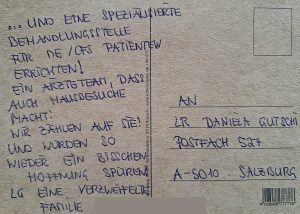 ... UND EINE SPEZIALISIERTE
BEHANDLUNGSSTELLE
FÜR ME/CFS PATIENTEN
ERRICHTEN!
EIN ÄRZTETEAM, DASS
AUCH HAUSBESUCHE
MACHT!
WIR ZÄHLEN AUF SIE!
UND WÜRDEN SO
WIEDER EIN BISSCHEN
HOFFNUNG SPÜREN.
LG EINE VERZWEIFELTE
FAMILIE
AN
LR DANIELA GUTSCHI
POSTFACH 527
A-5010 SALZBURG